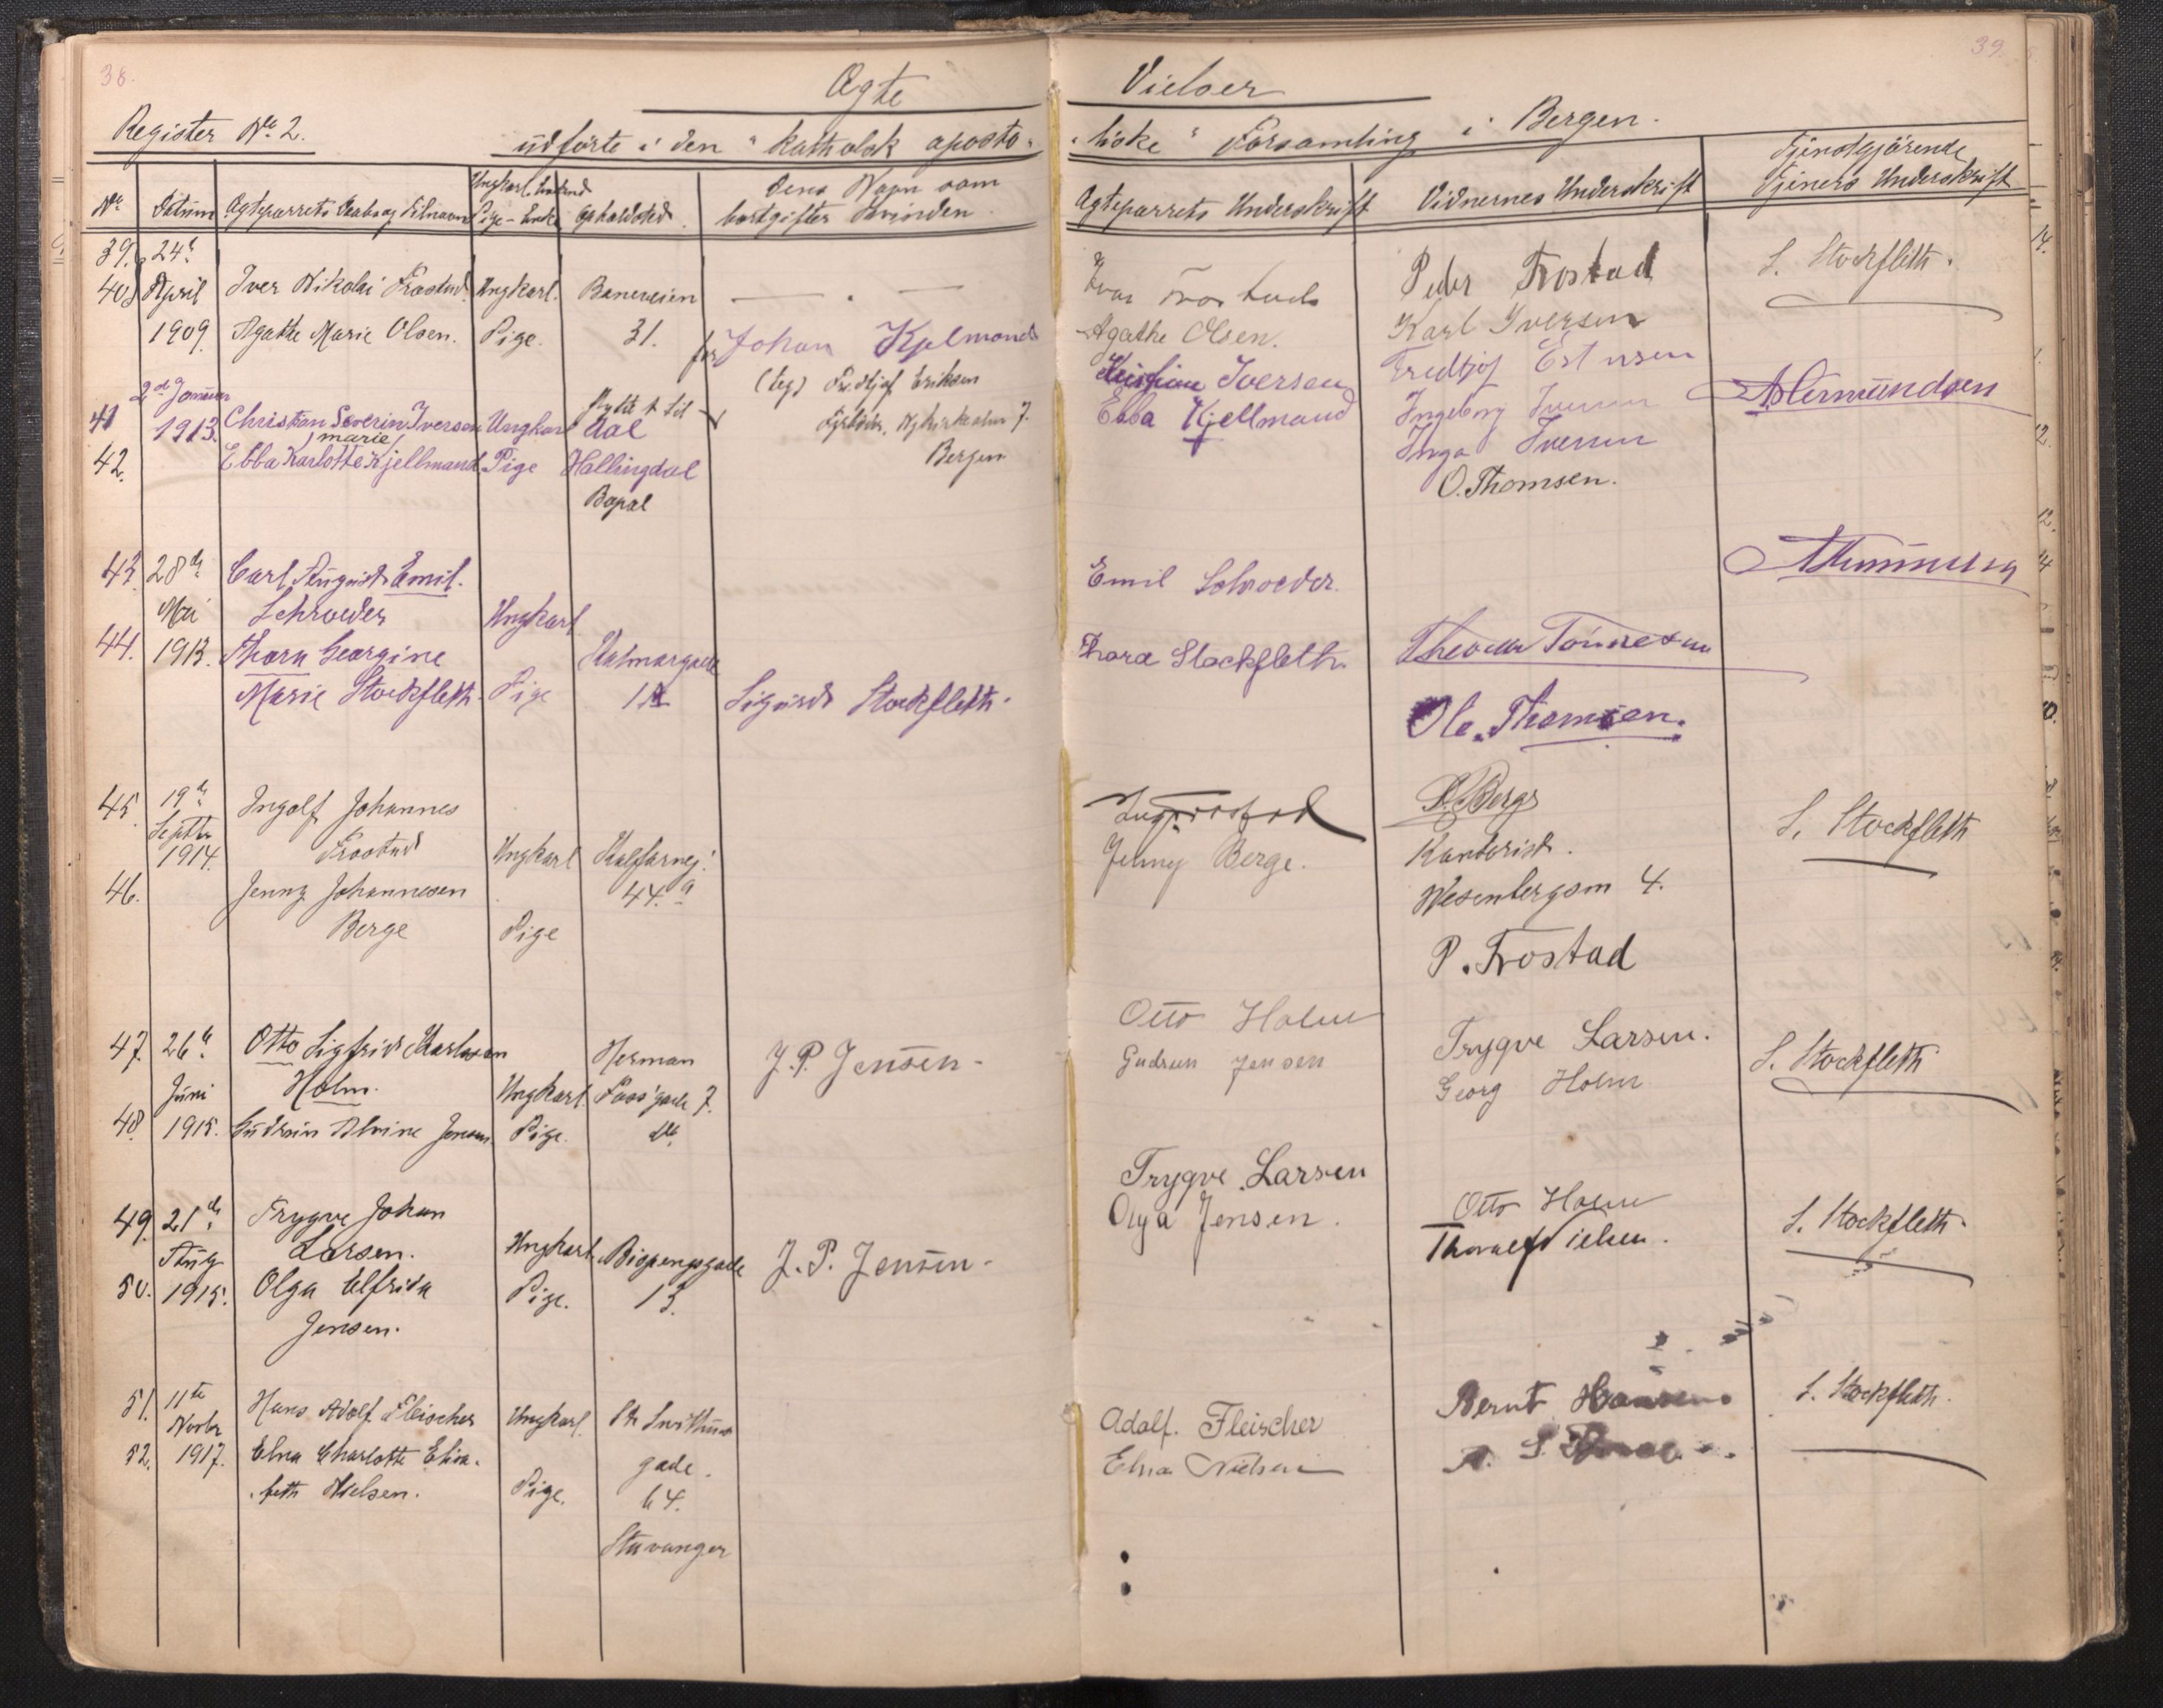 38.
39.
Ægte Vielser
Register No. 2. udførte i den "katholsk aposto-liske" Forsamling i Bergen.
No. Datum Ægteparrets Daabs og Tilnavn Ungkarl Enkemd Pige - Enke Opholdsted Dens Navn som bortgifter Kvinden. Ægteparrets Underskrift Vidnernes Underskrift Tjenstgjörende Tjeners Underskrift
39. 24de Peder Trostad S. Stockfleth.
40. April Iver Nikolai Frostad Ungkarl. Baneveien Iver Trostad
1909. Agathe Marie Olsen. Pige. 31. Agathe Olsen. Karl Iversen
for Johan Kjelmand
(teg) Fredtjof Eriksen
Bergen
41 2de Januar 1913. Christian Severin Iversen Ungkarl dal Kristian Iversen Fredtjof A. Hermundsen
Marie
42. Ebba Karlotte Kjellmand Pige Hallingdal Ebba Kjellmand Ingeborg Iversen
Inga Iversen
O. Thomsen.
43. 28de Carl August Emil. Emil Schroeder.
Mai Schroeder Ungkarl
44. 1913. Thora Georgine Kalmargade Thora Stockfleth.
Marie Stockfleth. Pige Sigurd Stockfleth.
Ole. Thomsen.
45. 19de Ingolf Johannes Berge S. Stockfleth
Septbr 1914. Frostad Ungkarl Kalfarvej. Jenny Berge. Kontorist.
46. Jenny Johannesen 44.a Wesenbergsm 4.
Berge Pige
P. Trostad
47. 26de Otto Sigfrid Karlsen Herman J. P. Jensen. Otto Holm Trygve Larsen. S. Stockfleth
Juni Holm. Ungkarl. Foss'gade 7. Gudrun Jensen Georg Holm
48. 1915. Gudrun Alvine Jensen. Pige. do.
49. 21de Trygve Johan Trygve Larsen Otto Holm S. Stockfleth.
Aug Larsen. Ungkarl. Bispengsgade J. P. Jensen. Olga Jensen. Thoralf Nielsen.
50. 1915. Olga Elfrida Pige. 13.
Jensen.
51. 11te Hans Adolf Fleischer Ungkarl. St. Svithuns Adolf. Fleischer Bernt Hansen S. Stockfleth.
Novbr
52. 1917. Elna Charlotte Elisa- gade. Elna Nielsen
beth Nielsen. Pige. 64.
Stavanger